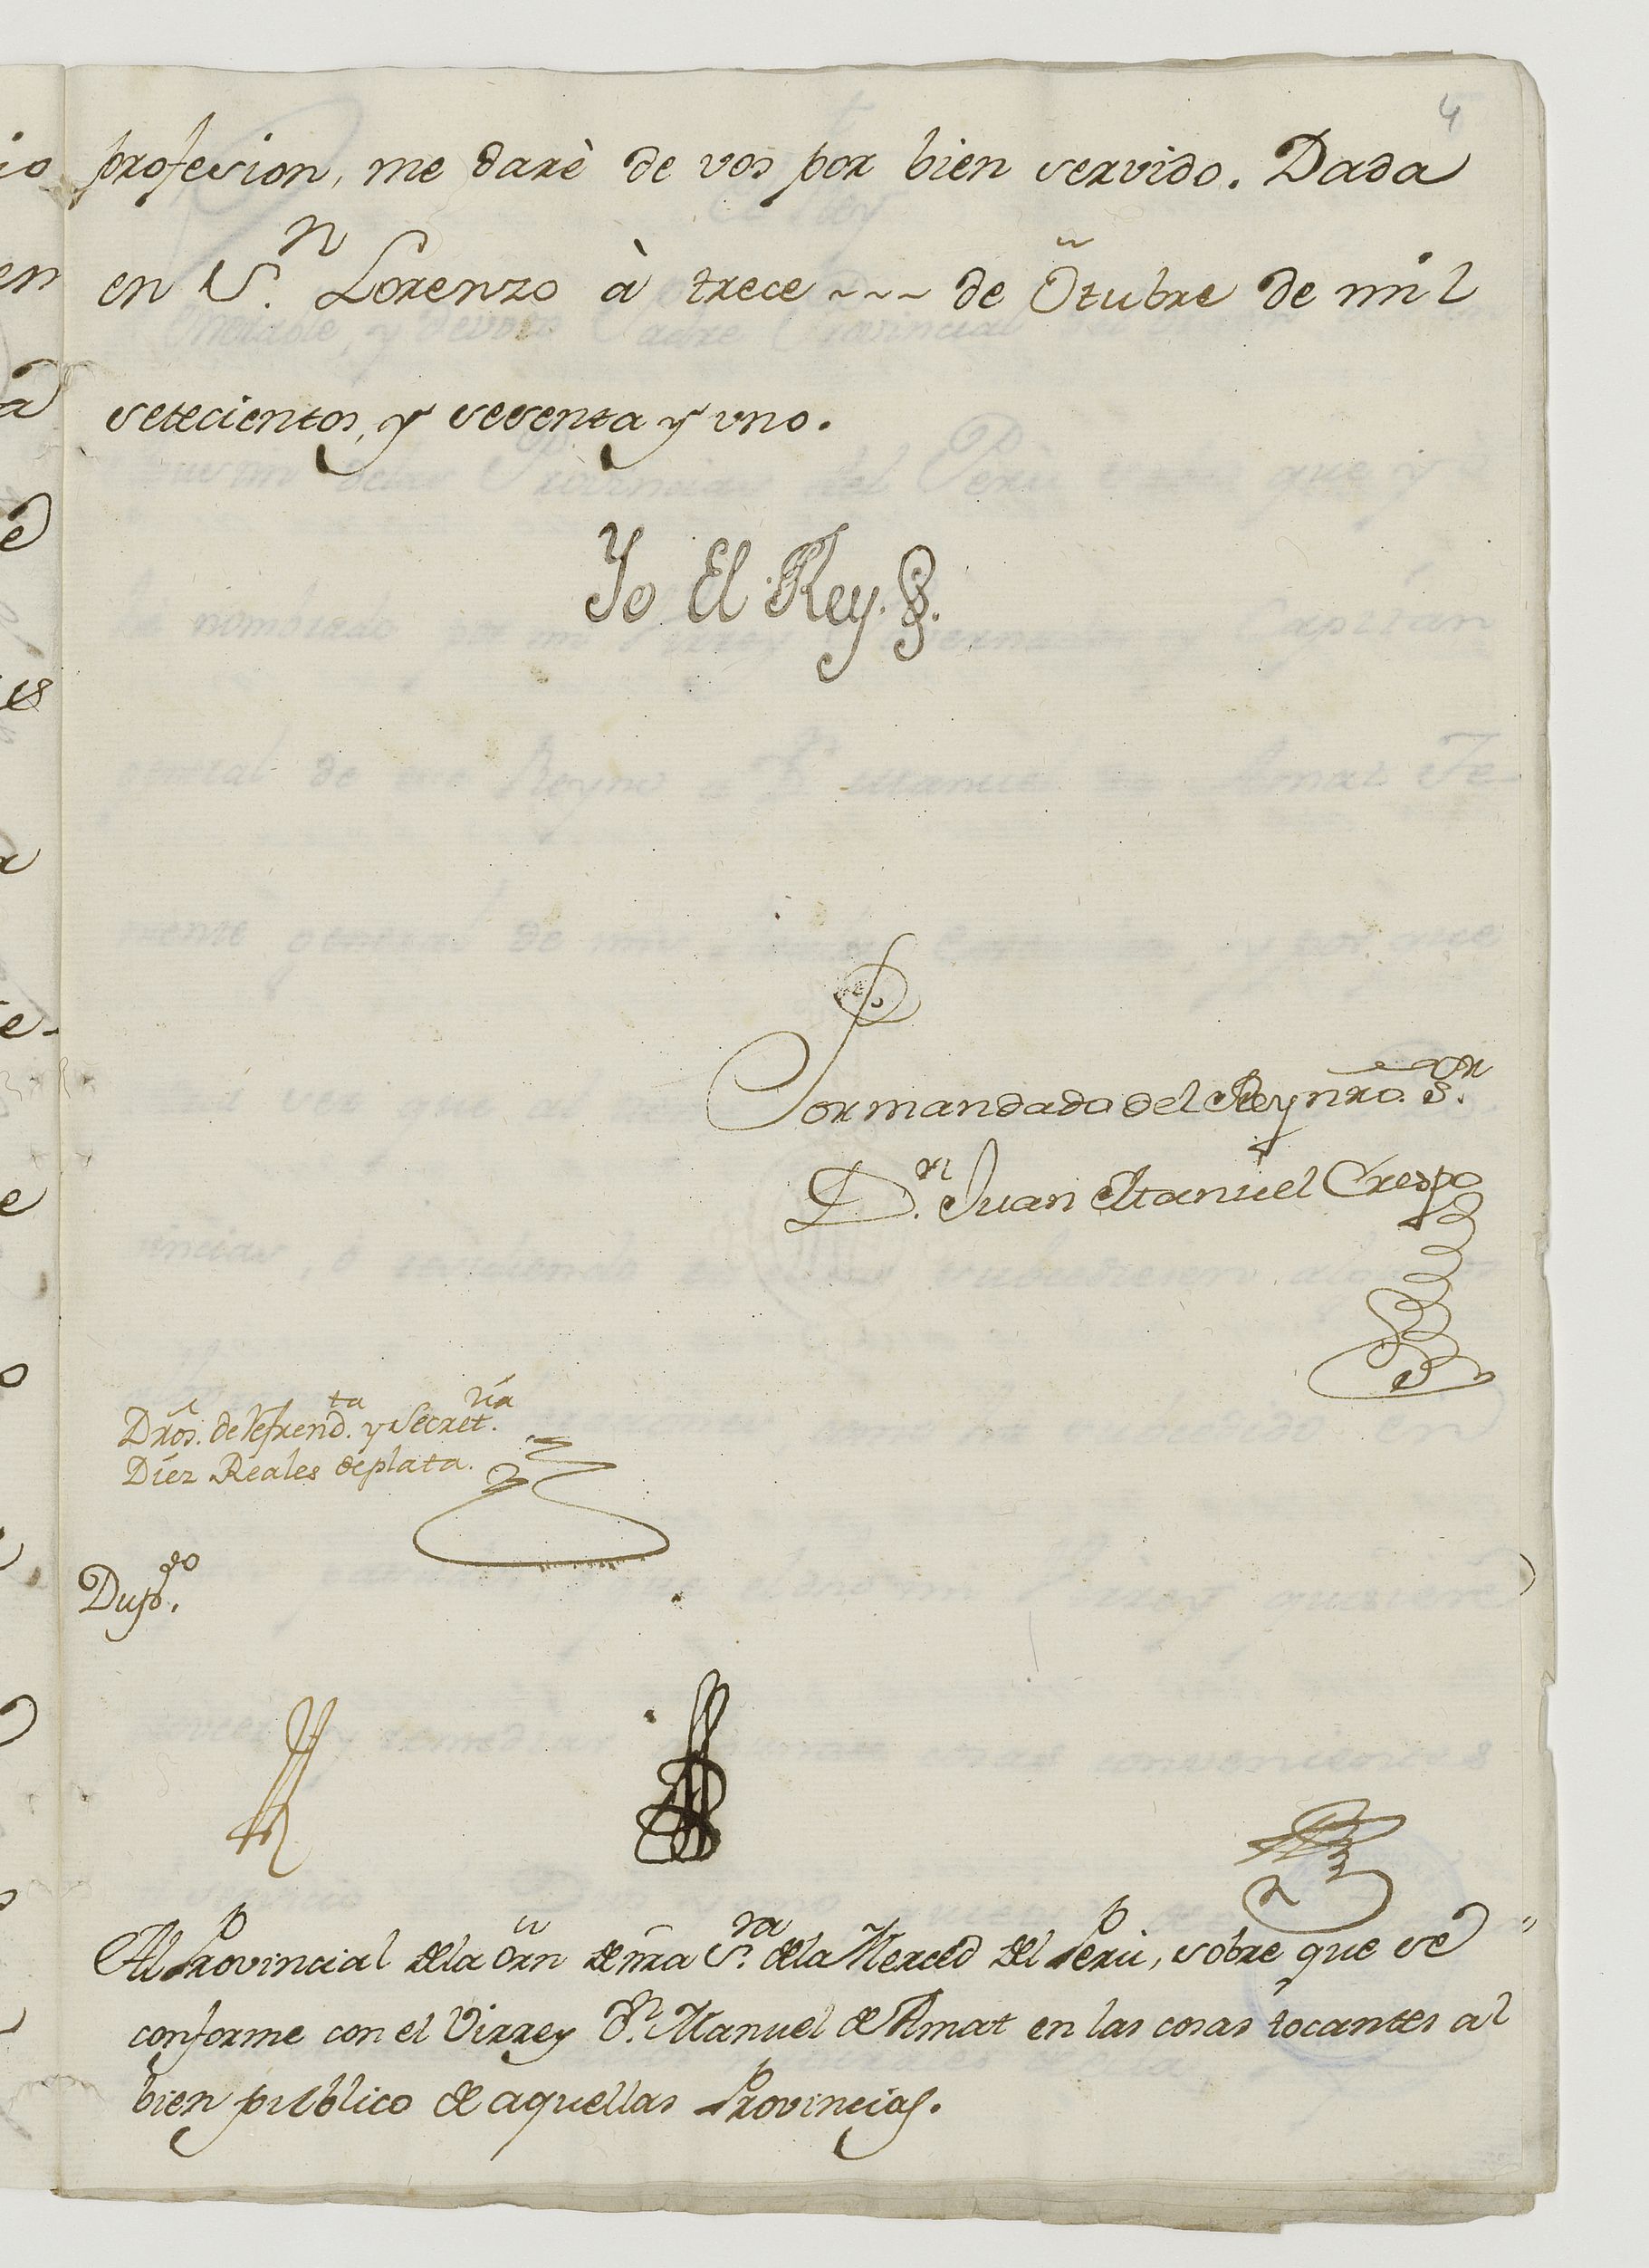 4
profesion, me darè de vos por bien servido. Dada
en S.n Lorenzo à trece ~~~ de Otubre de mil
setecientos, y sesenta y uno.
Yo El Rey.
Por mandado del Rey nro. S.or
D.n Juan Manuel Crespo
Dros. de refrend.ta y Secret.ria
Diez Reales de plata.
Dup.do
Al Provincial de la Orn de nra S.ra de la Merced del Perù, sobre que se
conforme con el Virrey D.n Manuel de Amat en las cosas tocantes al
bien publico de aquellas Provincias.